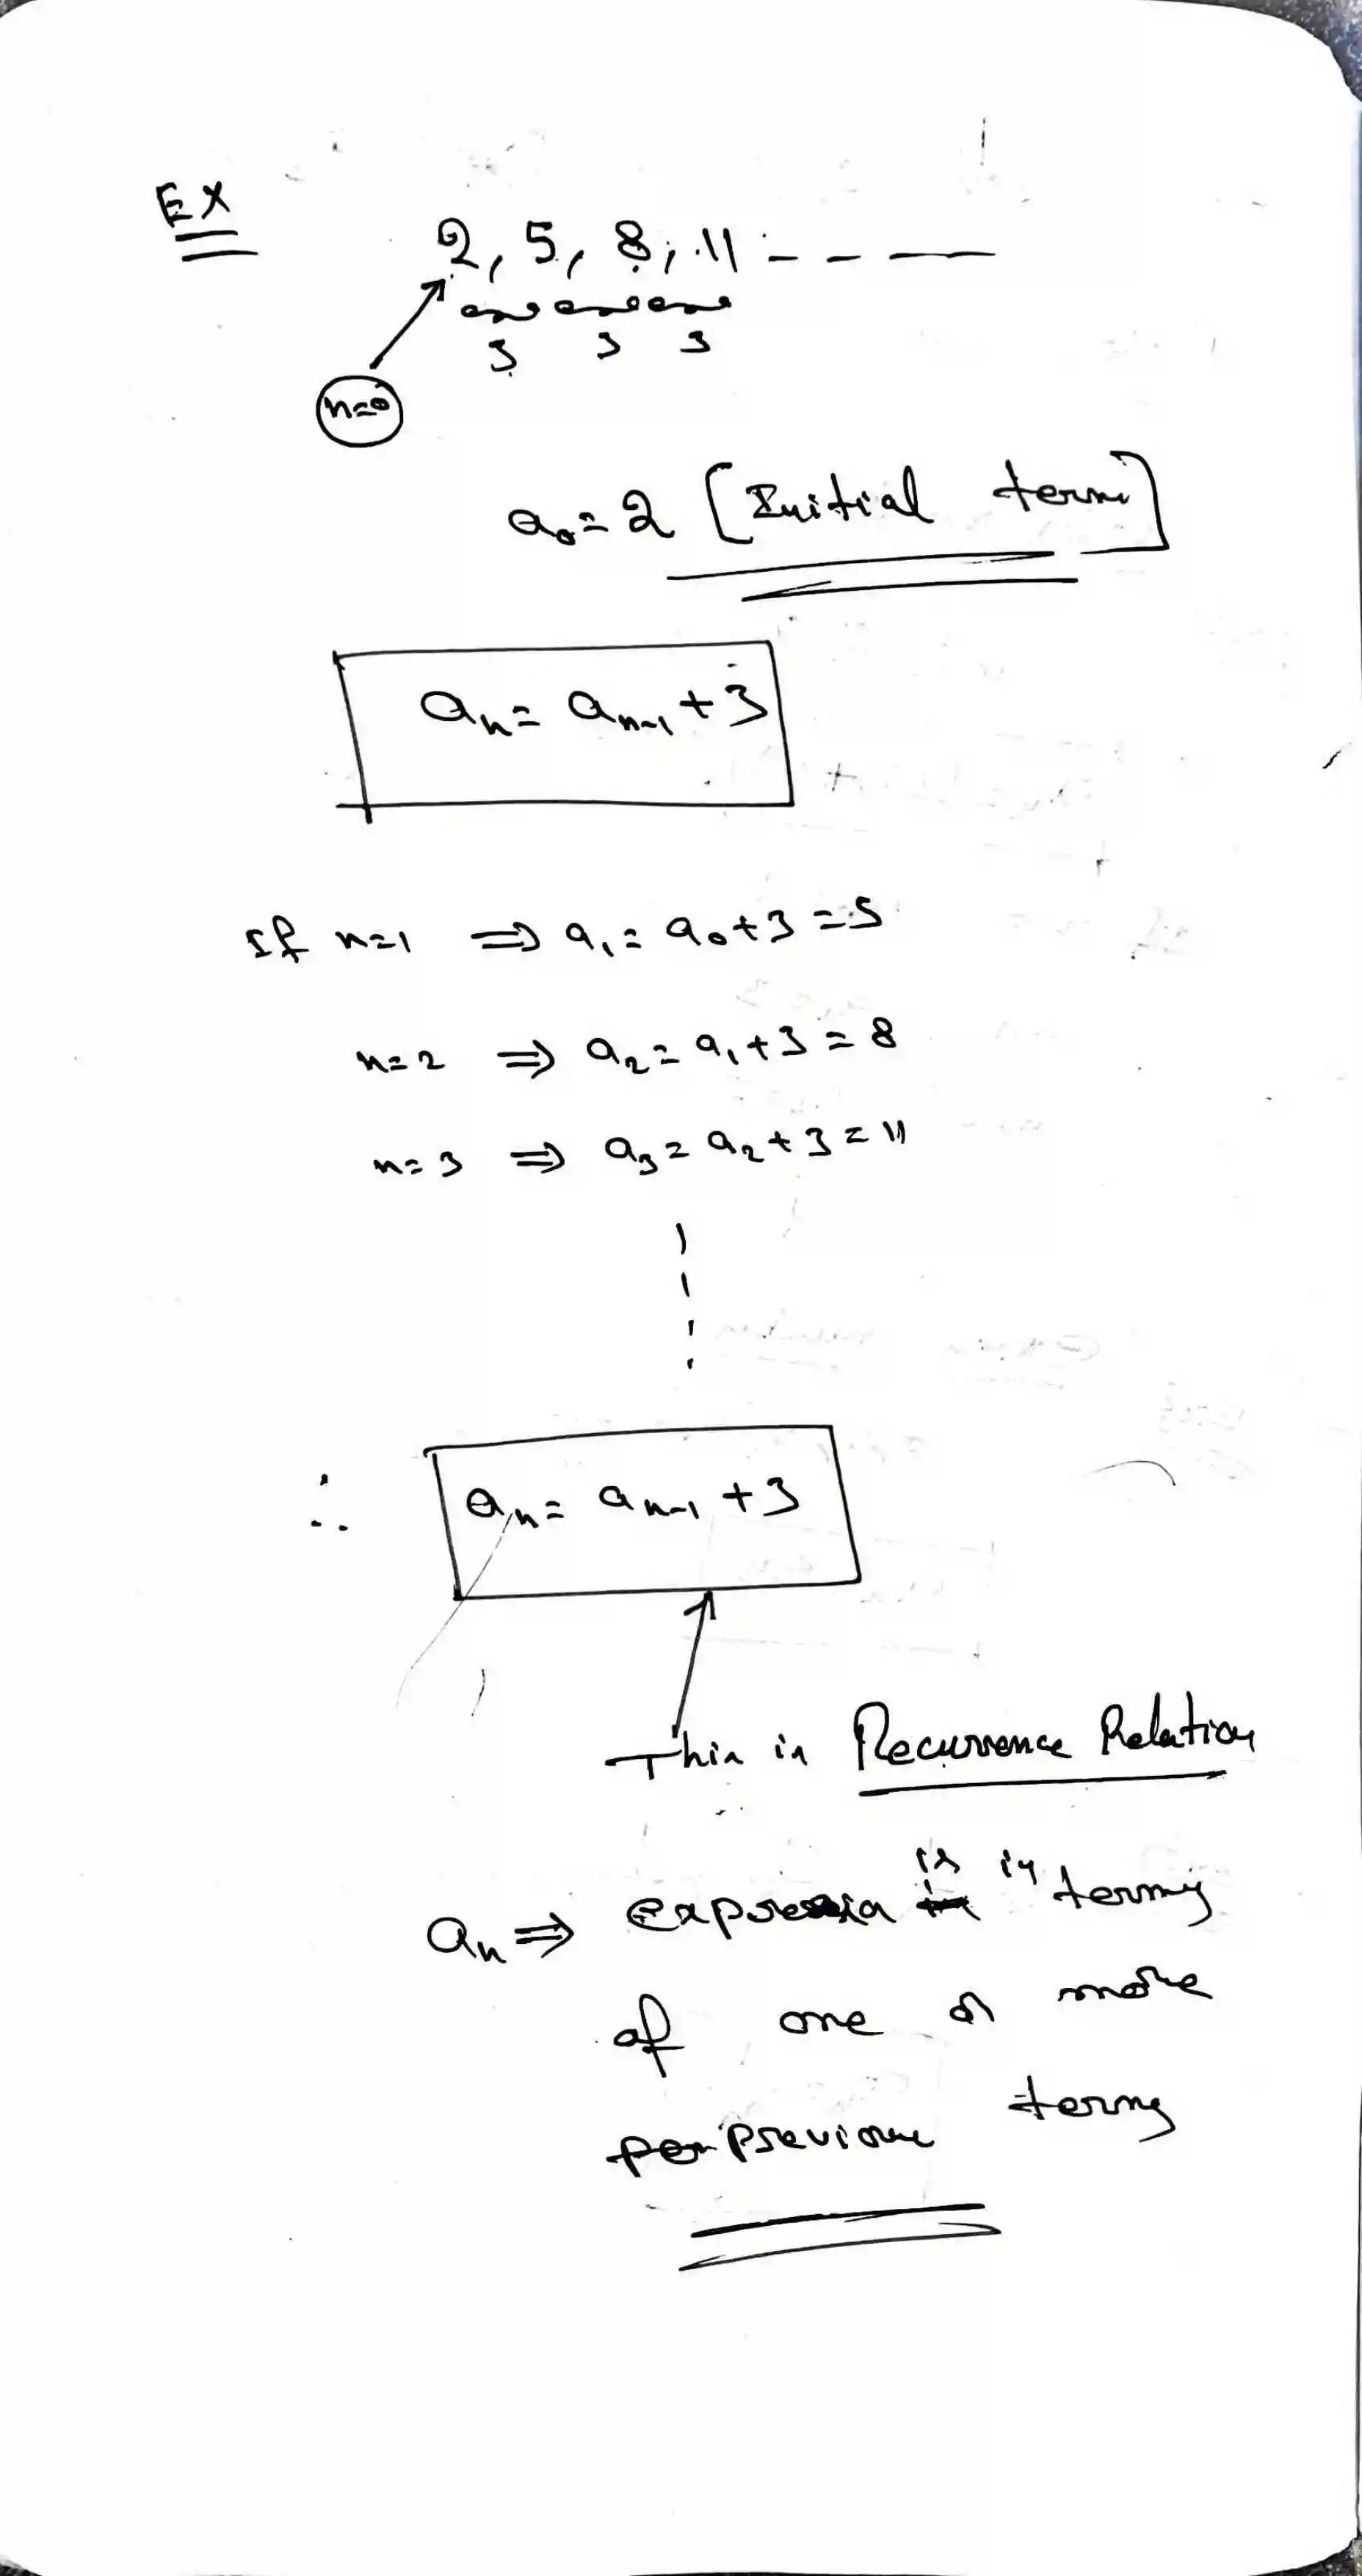 EX
2, 5, 8, 11 - - —
3 3 3
n=0
a₀ = 2 [Initial term]
aₙ = aₙ₋₁ + 3
If n=1 ⇒ a₁ = a₀ + 3 = 5
n=2 ⇒ a₂ = a₁ + 3 = 8
n=3 ⇒ a₃ = a₂ + 3 = 11
∴ aₙ = aₙ₋₁ + 3
This is Recurrence Relation
aₙ ⇒ is in terms
of one or more
previous terms